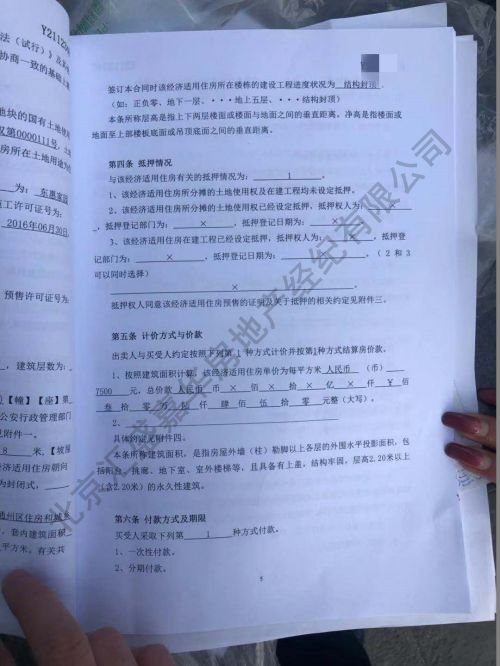 Y21129
法（试行）》及其他
协商一致的基础上就
地块的国有土地使用
双第0000111号，土地
房所在土地用途为
为：东惠家园
施工许可证号为：
2016年06月30日
预售许可证号为
，建筑层数为：
【幢】【座】第
公安行政管理部门
见附件一。
8 米，【坡屋
经济适用住房朝向
为封闭式，
通州区住房和城乡
，套内建筑面积
平方米。有关共
签订本合同时该经济适用住房所在楼栋的建设工程进度状况为 结构封顶 。
（如：正负零、地下一层、・・・地上五层、・・・结构封顶）
本条所称层高是指上下两层楼面或楼面与地面之间的垂直距离。净高是指楼面或
地面至上部楼板底面或吊顶底面之间的垂直距离。
第四条 抵押情况
与该经济适用住房有关的抵押情况为： 1 。
1、该经济适用住房所分摊的土地使用权及在建工程均未设定抵押。
2、该经济适用住房所分摊的土地使用权已经设定抵押，抵押权人为： ×
，抵押登记部门为： × ，抵押登记日期为： × 。
3、该经济适用住房在建工程已经设定抵押，抵押权人为： × ，抵押登
记部门为： × ，抵押登记日期为： × 。（ 2 和 3
可以同时选择）
×
抵押权人同意该经济适用住房预售的证明及关于抵押的相关约定见附件三。
第五条 计价方式与价款
出卖人与买受人约定按照下列第 1 种方式计价并按第1种方式结算房价款。
1、按照建筑面积计算，该经济适用住房单价为每平方米 人民币 （币）
7500 元，总价款 人民币 × 佰 × 拾 × 亿 × 仟 ¥ 佰
叁 拾 零 万 陆 仟 肆 佰 伍 拾 零 元整（大写）。
2、
具体约定见附件四。
本条所称建筑面积，是指房屋外墙（柱）勒脚以上各层的外围水平投影面积，包
括阳台、挑廊、地下室、室外楼梯等，且具备有上盖，结构牢固，层高2.20米以上
（含2.20米）的永久性建筑。
第六条 付款方式及期限
买受人采取下列第 1 种方式付款。
1、一次性付款。
2、分期付款。
5